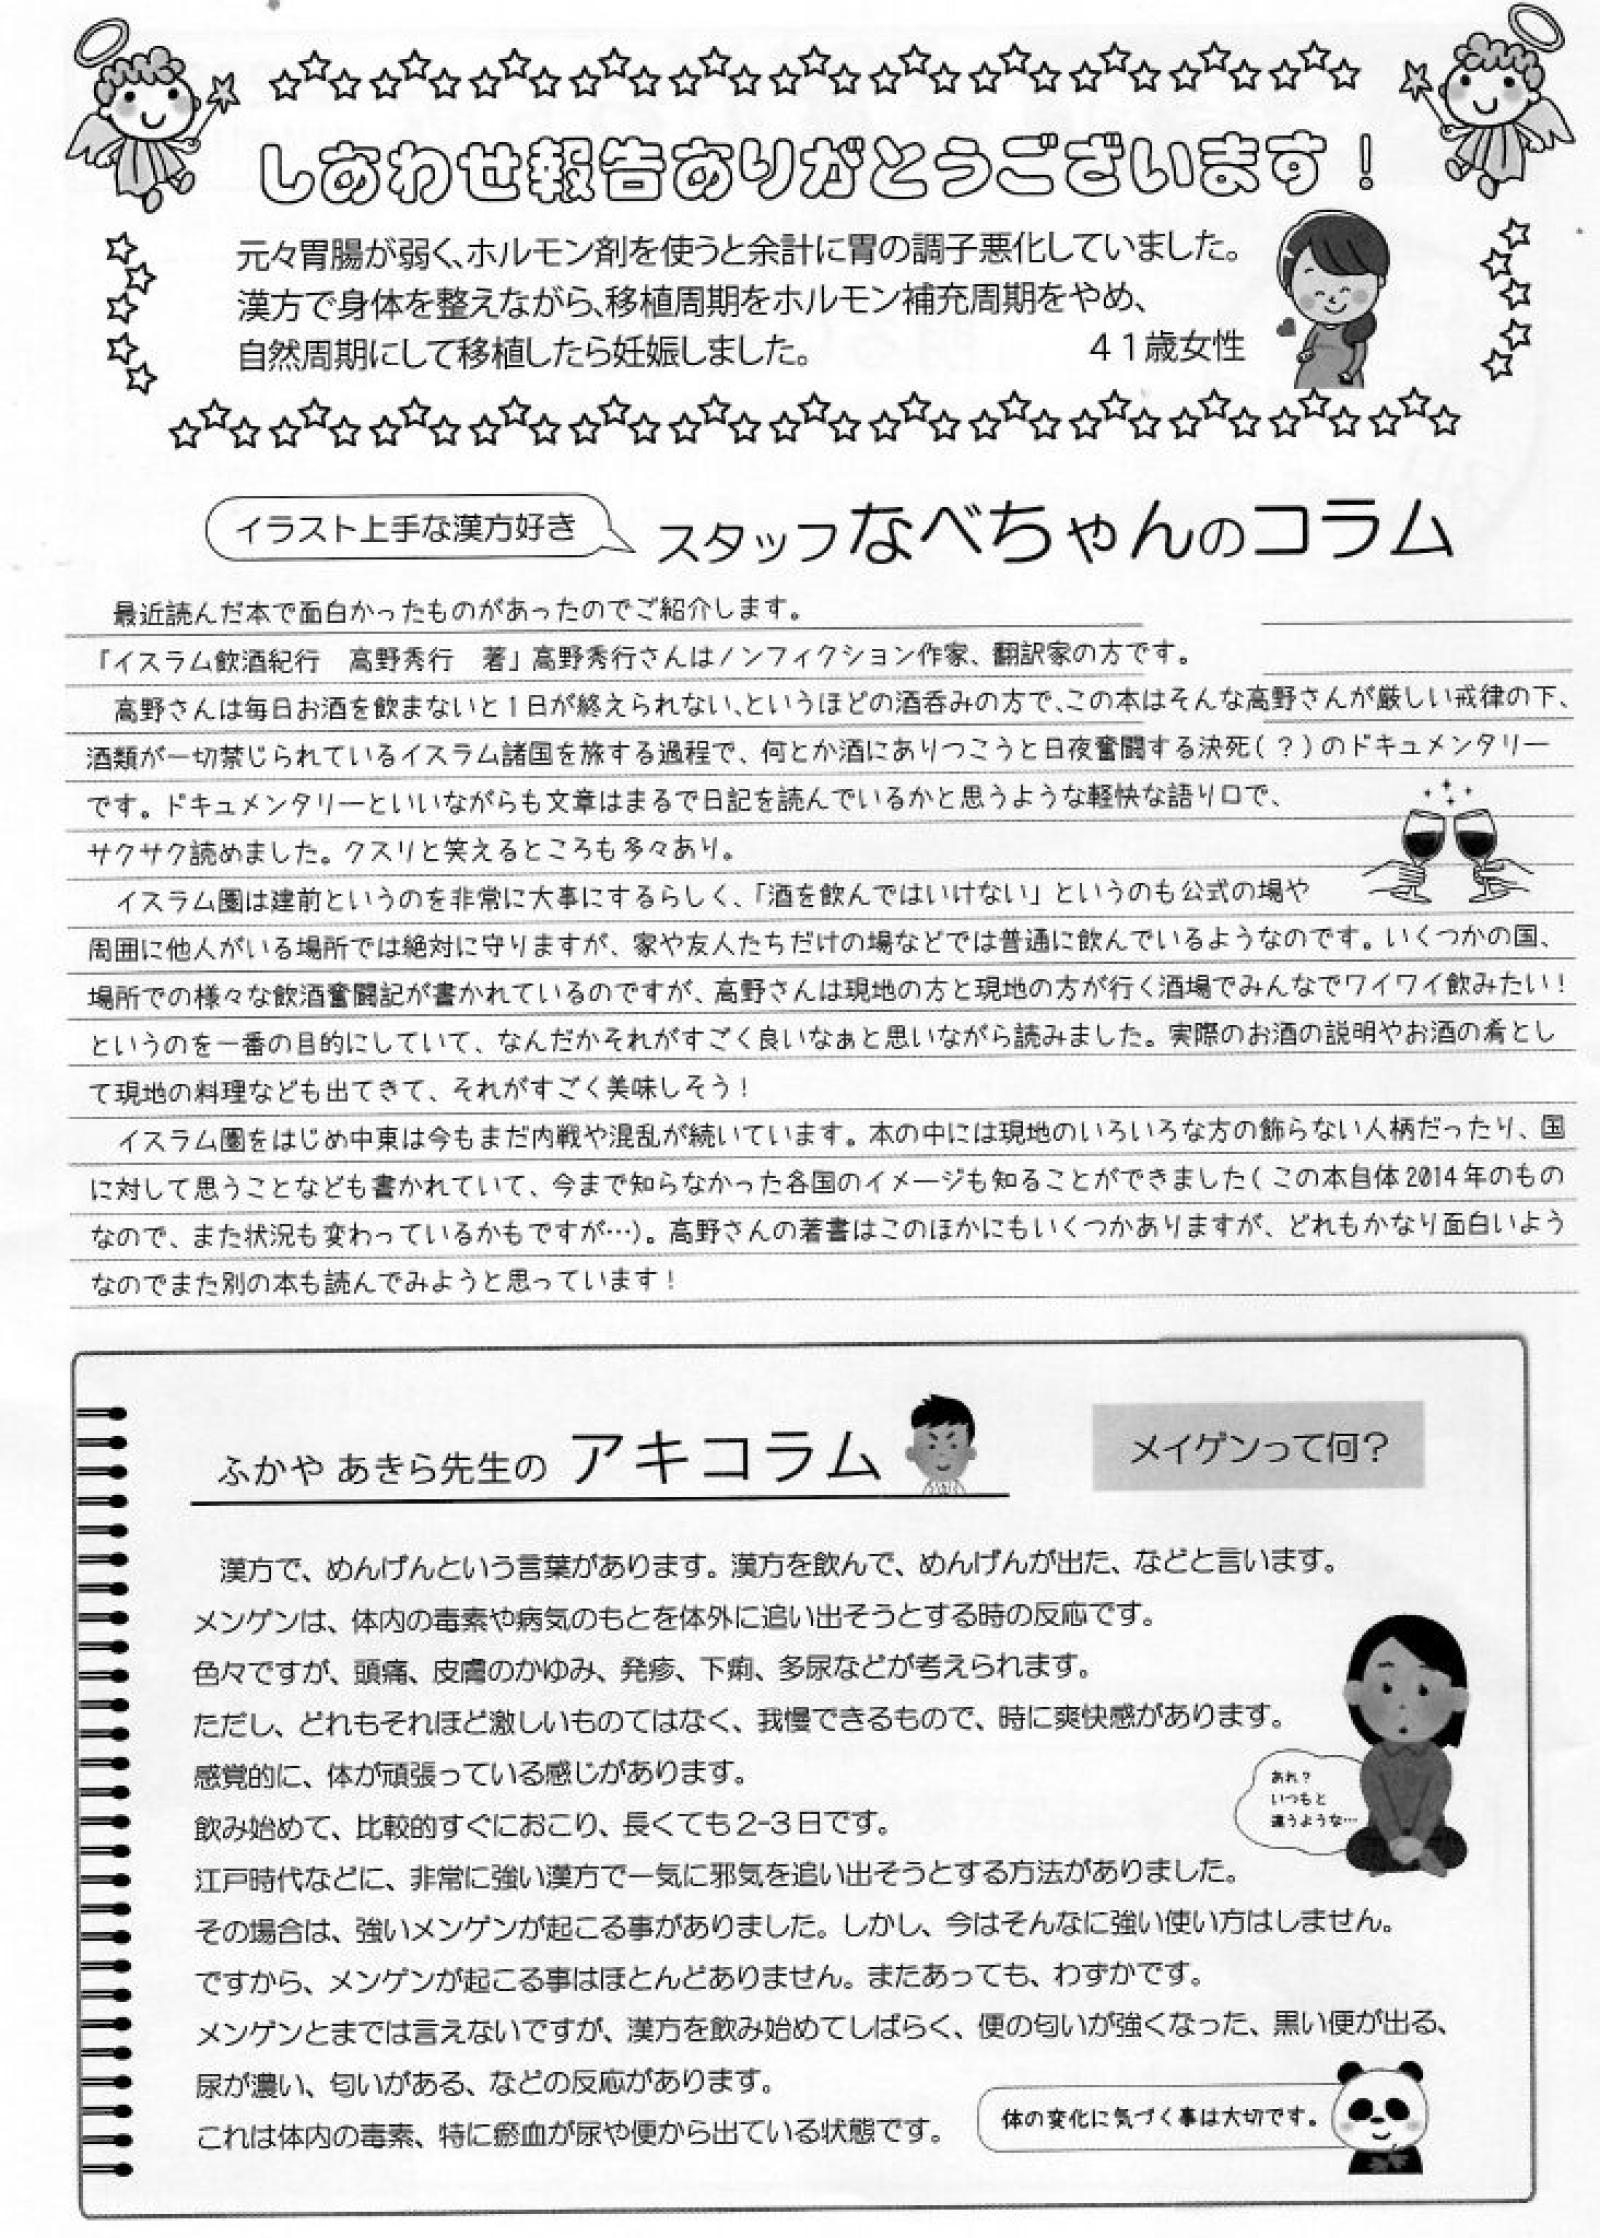 しあわせ報告ありがとうございます！
元々胃腸が弱く、ホルモン剤を使うと余計に胃の調子悪化していました。
漢方で身体を整えながら、移植周期をホルモン補充周期をやめ、
自然周期にして移植したら妊娠しました。　４１歳女性
イラスト上手な漢方好き
スタッフなべちゃんのコラム
最近読んだ本で面白かったものがあったのでご紹介します。
「イスラム飲酒紀行　高野秀行　著」高野秀行さんはノンフィクション作家、翻訳家の方です。
高野さんは毎日お酒を飲まないと1日が終えられない、というほどの酒呑みの方で、この本はそんな高野さんが厳しい戒律の下、
酒類が一切禁じられているイスラム諸国を旅する過程で、何とか酒にありつこうと日夜奮闘する決死(？)のドキュメンタリー
です。ドキュメンタリーといいながらも文章はまるで日記を読んでいるかと思うような軽快な語り口で、
サクサク読めました。クスリと笑えるところも多々あり。
イスラム圏は建前というのを非常に大事にするらしく、「酒を飲んではいけない」というのも公式の場や
周囲に他人がいる場所では絶対に守りますが、家や友人たちだけの場などでは普通に飲んでいるようなのです。いくつかの国、
場所での様々な飲酒奮闘記が書かれているのですが、高野さんは現地の方と現地の方が行く酒場でみんなでワイワイ飲みたい！
というのを一番の目的にしていて、なんだかそれがすごく良いなぁと思いながら読みました。実際のお酒の説明やお酒の肴とし
て現地の料理なども出てきて、それがすごく美味しそう！
イスラム圏をはじめ中東は今もまだ内戦や混乱が続いています。本の中には現地のいろいろな方の飾らない人柄だったり、国
に対して思うことなども書かれていて、今まで知らなかった各国のイメージも知ることができました(この本自体2014年のもの
なので、また状況も変わっているかもですが…)。高野さんの著書はこのほかにもいくつかありますが、どれもかなり面白いよう
なのでまた別の本も読んでみようと思っています！
ふかや あきら先生の アキコラム
メイゲンって何？
漢方で、めんげんという言葉があります。漢方を飲んで、めんげんが出た、などと言います。
メンゲンは、体内の毒素や病気のもとを体外に追い出そうとする時の反応です。
色々ですが、頭痛、皮膚のかゆみ、発疹、下痢、多尿などが考えられます。
ただし、どれもそれほど激しいものてはなく、我慢できるもので、時に爽快感があります。
感覚的に、体が頑張っている感じがあります。
あれ？
いつもと
違うような…
飲み始めて、比較的すぐにおこり、長くても2-3日です。
江戸時代などに、非常に強い漢方で一気に邪気を追い出そうとする方法がありました。
その場合は、強いメンゲンが起こる事がありました。しかし、今はそんなに強い使い方はしません。
ですから、メンゲンが起こる事はほとんどありません。またあっても、わずかです。
メンゲンとまでは言えないですが、漢方を飲み始めてしばらく、便の匂いが強くなった、黒い便が出る、
尿が濃い、匂いがある、などの反応があります。
これは体内の毒素、特に瘀血が尿や便から出ている状態です。
体の変化に気づく事は大切です。